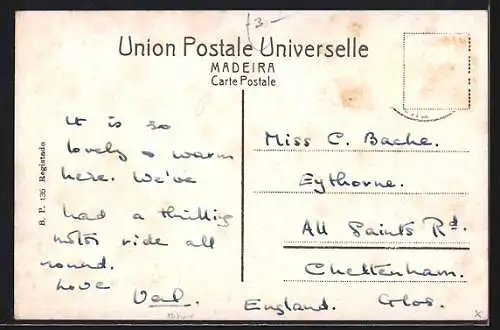 Union Postale Universelle
MADEIRA
Carte Postale
B. P. 135 Registado
It is so
lovely & warm
here. We've
had a thrilling
motor ride all
round.
Love
Val.
Miss C. Bache.
Eythorne.
All Saints Rd.
Cheltenham.
England. Glos.